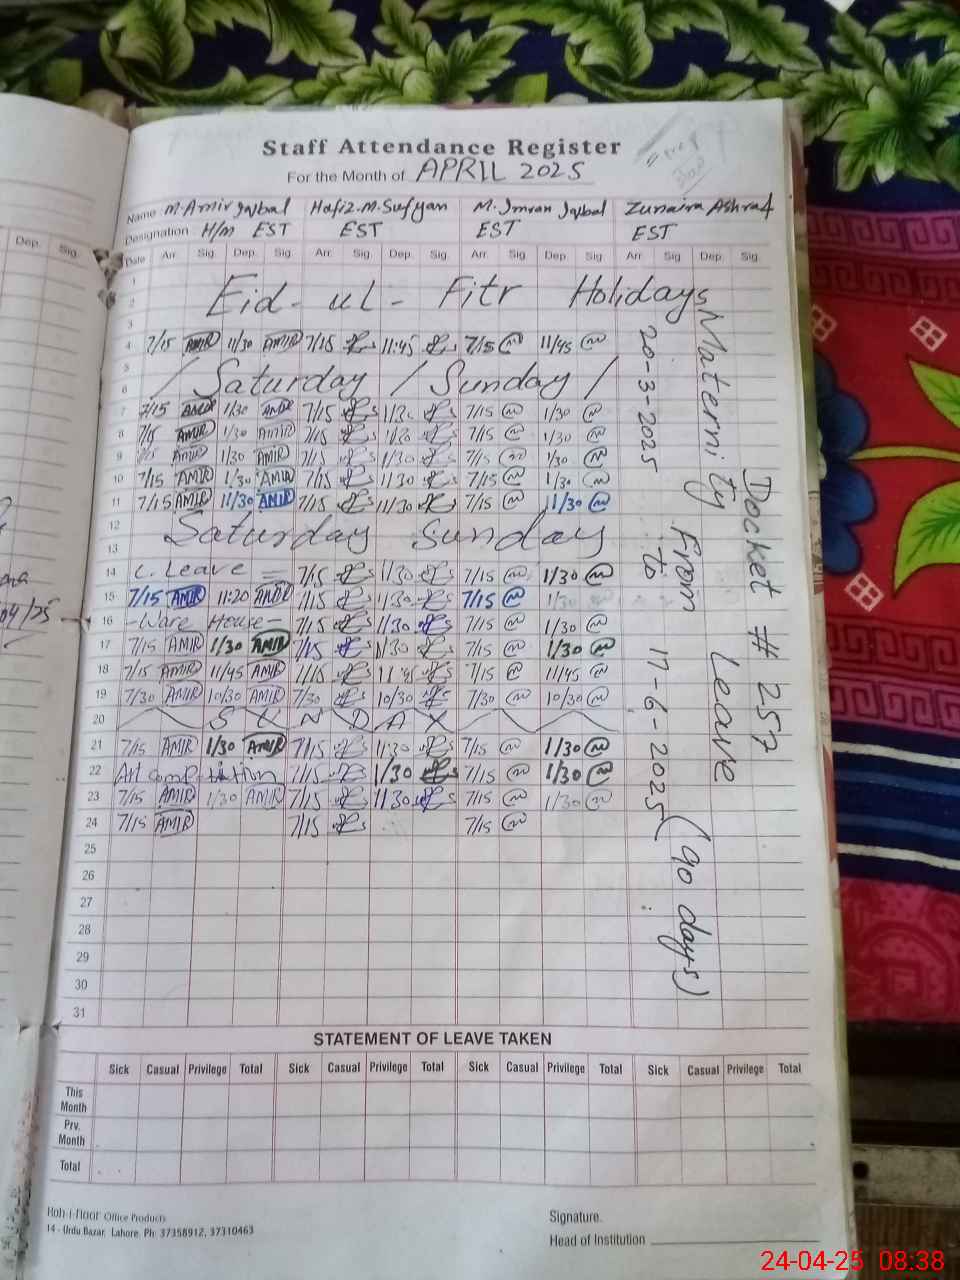 Staff Attendance Register
For the Month of APRIL 2025
Name M.Amir Iqbal Hafiz.M.Sufyan M.Imran Iqbal Zunaira Ashraf
Designation H/M EST EST EST EST
Date Arr. Sig. Dep. Sig. Arr. Sig. Dep. Sig. Arr. Sig. Dep. Sig. Arr. Sig. Dep. Sig.
1
2 Eid-ul-Fitr Holidays
3
4 7/15 AMIR 11/30 AMIR 7/15 11:45 7/15 11/45
5
6 / Saturday / Sunday /
7 7/15 AMIR 1/30 AMIR 7/15 1/30 7/15 1/30
8 7/15 AMIR 1/30 AMIR 7/15 1/30 7/15 1/30
9 7/15 AMIR 1/30 AMIR 7/15 1/30 7/15 1/30
10 7/15 AMIR 1/30 AMIR 7/15 1/30 7/15 1/30
11 7/15 AMIR 11/30 AMIR 7/15 11/30 7/15 11/30
12 Saturday Sunday
13
14 C. Leave = 7/15 1/30 7/15 1/30
15 7/15 AMIR 11:20 AMIR 7/15 1/30 7/15 1/30
16 -Ware House- 7/15 1/30 7/15 1/30
17 7/15 AMIR 1/30 AMIR 7/15 1/30 7/15 1/30
18 7/15 AMIR 11/45 AMIR 7/15 11:45 7/15 11/45
19 7/30 AMIR 10/30 AMIR 7/30 10/30 7/30 10/30
20 SUNDAY
21 7/15 AMIR 1/30 AMIR 7/15 1:30 7/15 1/30
22 Art comptition 7/15 1/30 7/15 1/30
23 7/15 AMIR 1/30 AMIR 7/15 1/30 7/15 1/30
24 7/15 AMIR 7/15 7/15
25
26
27
28
29
30
31
Docket # 257
Maternity Leave
From
20-3-2025 to 17-6-2025 (90 days)
STATEMENT OF LEAVE TAKEN
Sick Casual Privilege Total Sick Casual Privilege Total Sick Casual Privilege Total Sick Casual Privilege Total
This Month
Prv. Month
Total
Koh-i-Noor Office Products
14 - Urdu Bazar, Lahore. Ph: 37358912, 37310463
Signature.
Head of Institution
Dep. Sig.
04/25
24-04-25 08:38